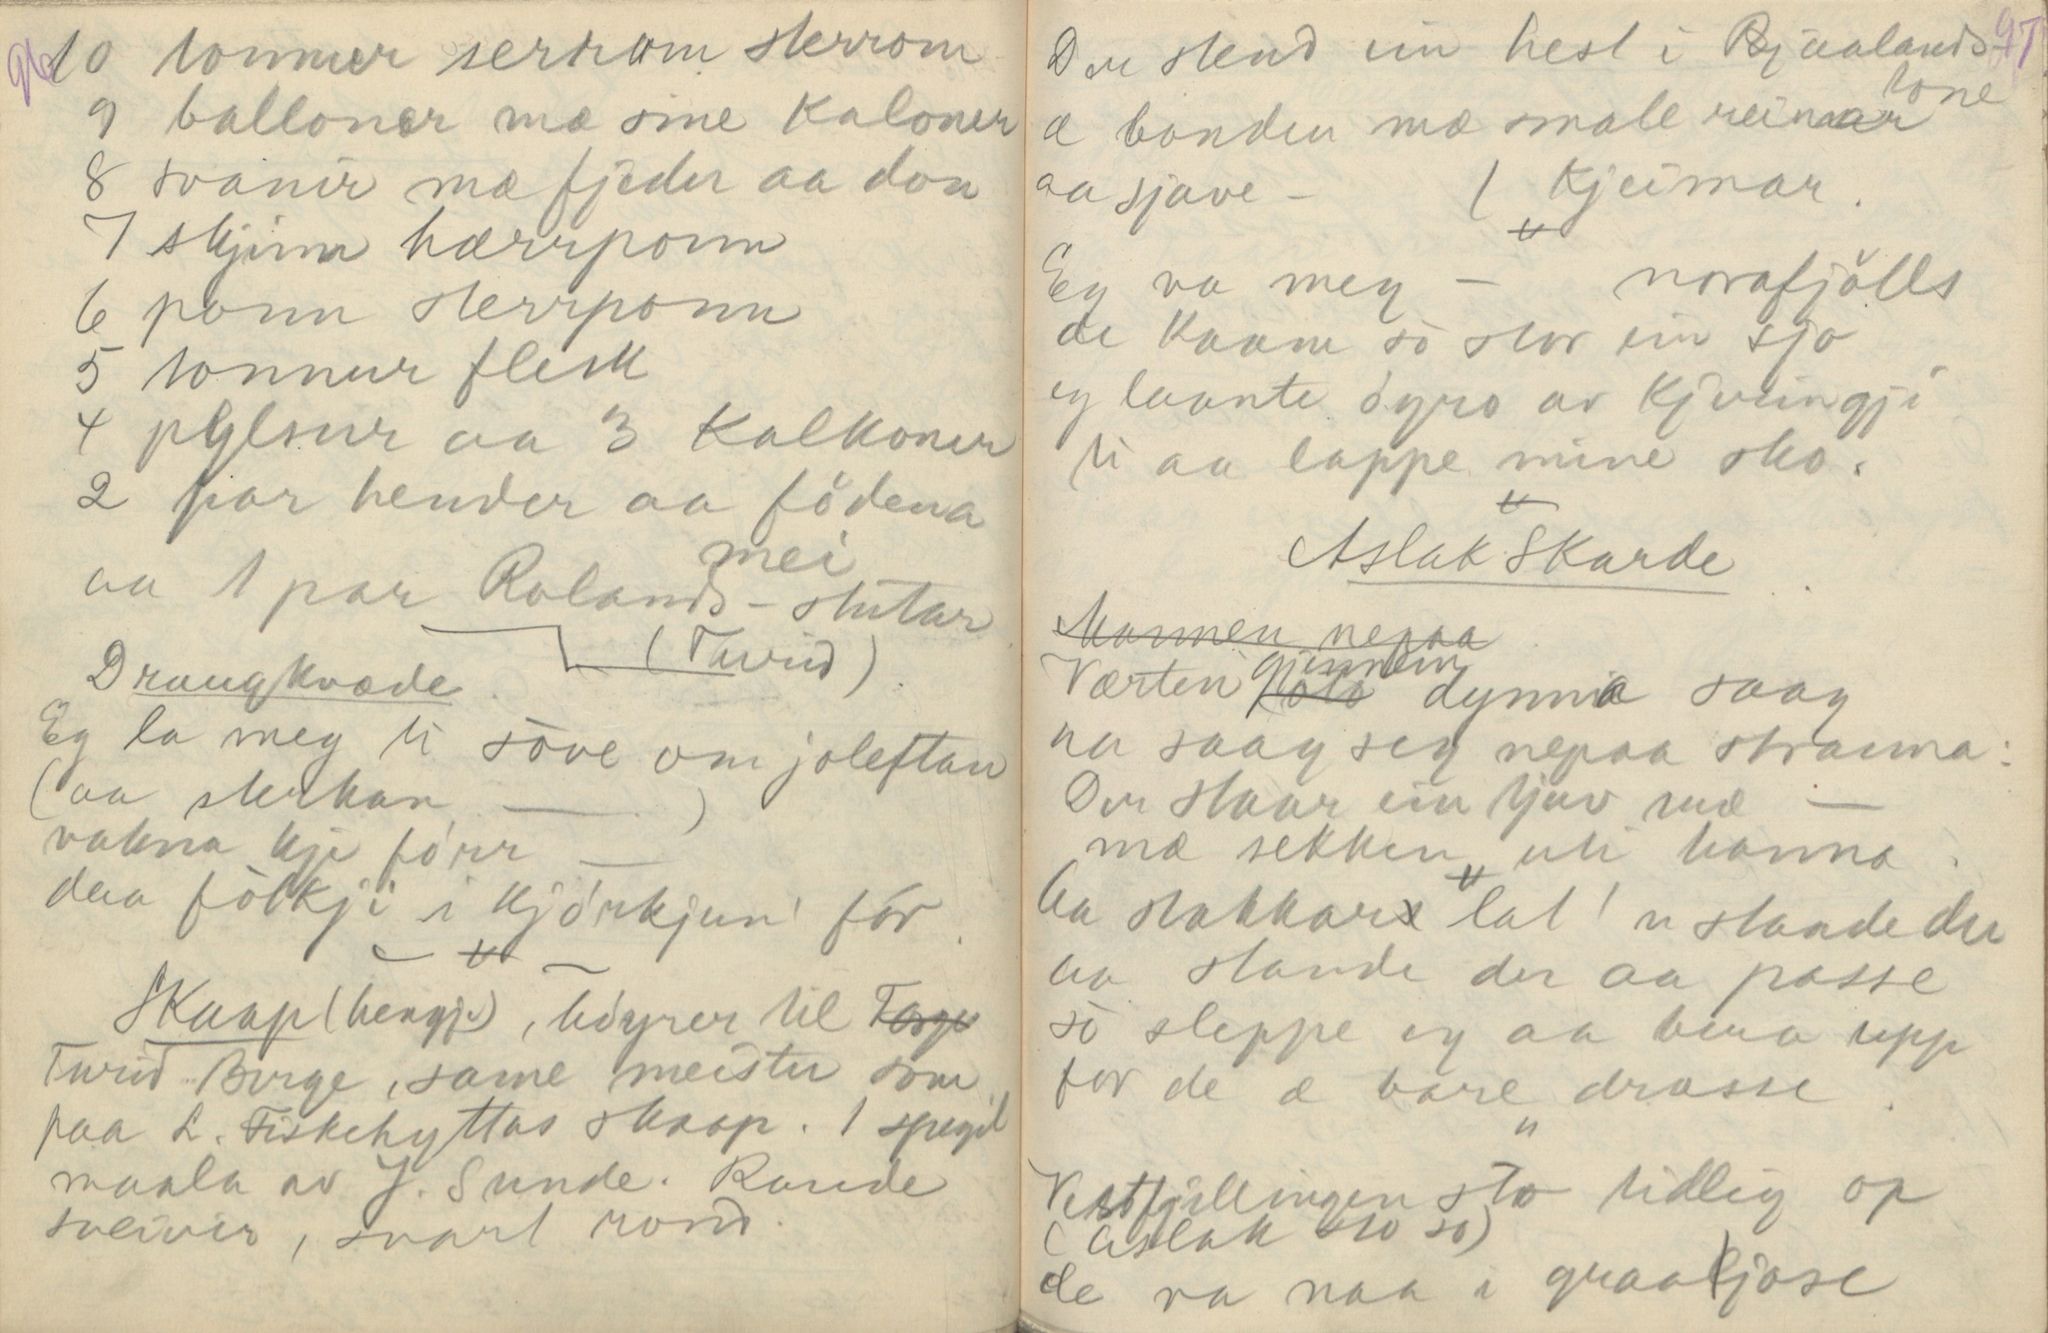 96
10 tonner serkom sterrom
9 balloner mæ sine kaloner
8 svanir mæ fjeder aa don
7 skjinn hærrponn
6 ponn sterrponn
5 tonnur flesk
4 pylsur aa 3 kalkoner
2 par hender aa födena
mei
aa 1 par Rolands-stutar
(Turid)
Draugkvæde
Eg la meg ti sòve om joleftan
(aa sterkan — )
vakna kje fórr —
daa folkji i kjórkjun' fór.
Skaap (hengje), høyrer til Targe
Turid Borge, same meister som
paa L. Fiskehyttas skaap. 1 spegil
maala av J. Sunde. Runde
sveiver, svart rond.
97
Der stend ein hest i Bjaalands-
tone
æ bonden mæ smale reimar
aa sjave – ( kjeimar.
Eg va meg — norafjólls
de kaam so stor ein sjo
eg laante óyro av kjeringji
ti aa lappe mine sko.
Aslak Skarde
Mannen nepaa
gjenom
Værten dynna saag
an saag seg nepaa strauma:
Der staar ein tjuv mæ —
mæ sekken uti hanna.
Aa stakkars lat! u stande der
aa stande der aa passe
so sleppe eg aa bera upp
for de æ bare drasse.
"
Vestfjellingen sto tidlig op
(Aslak sto so)
de va naa i graaljose